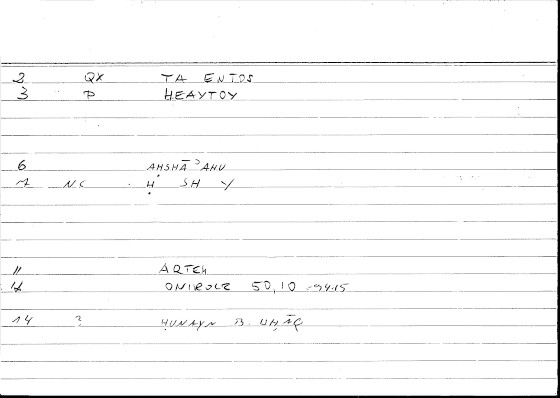 2 QX TA ENTOS
3 P HEAYTOY
6 AHSHĀʾ AHU
7 NC Ḥ SH Y
11 ARTEM
12 ONIROCR 50,10 -94.15
14 ? ḤUNAYN B.